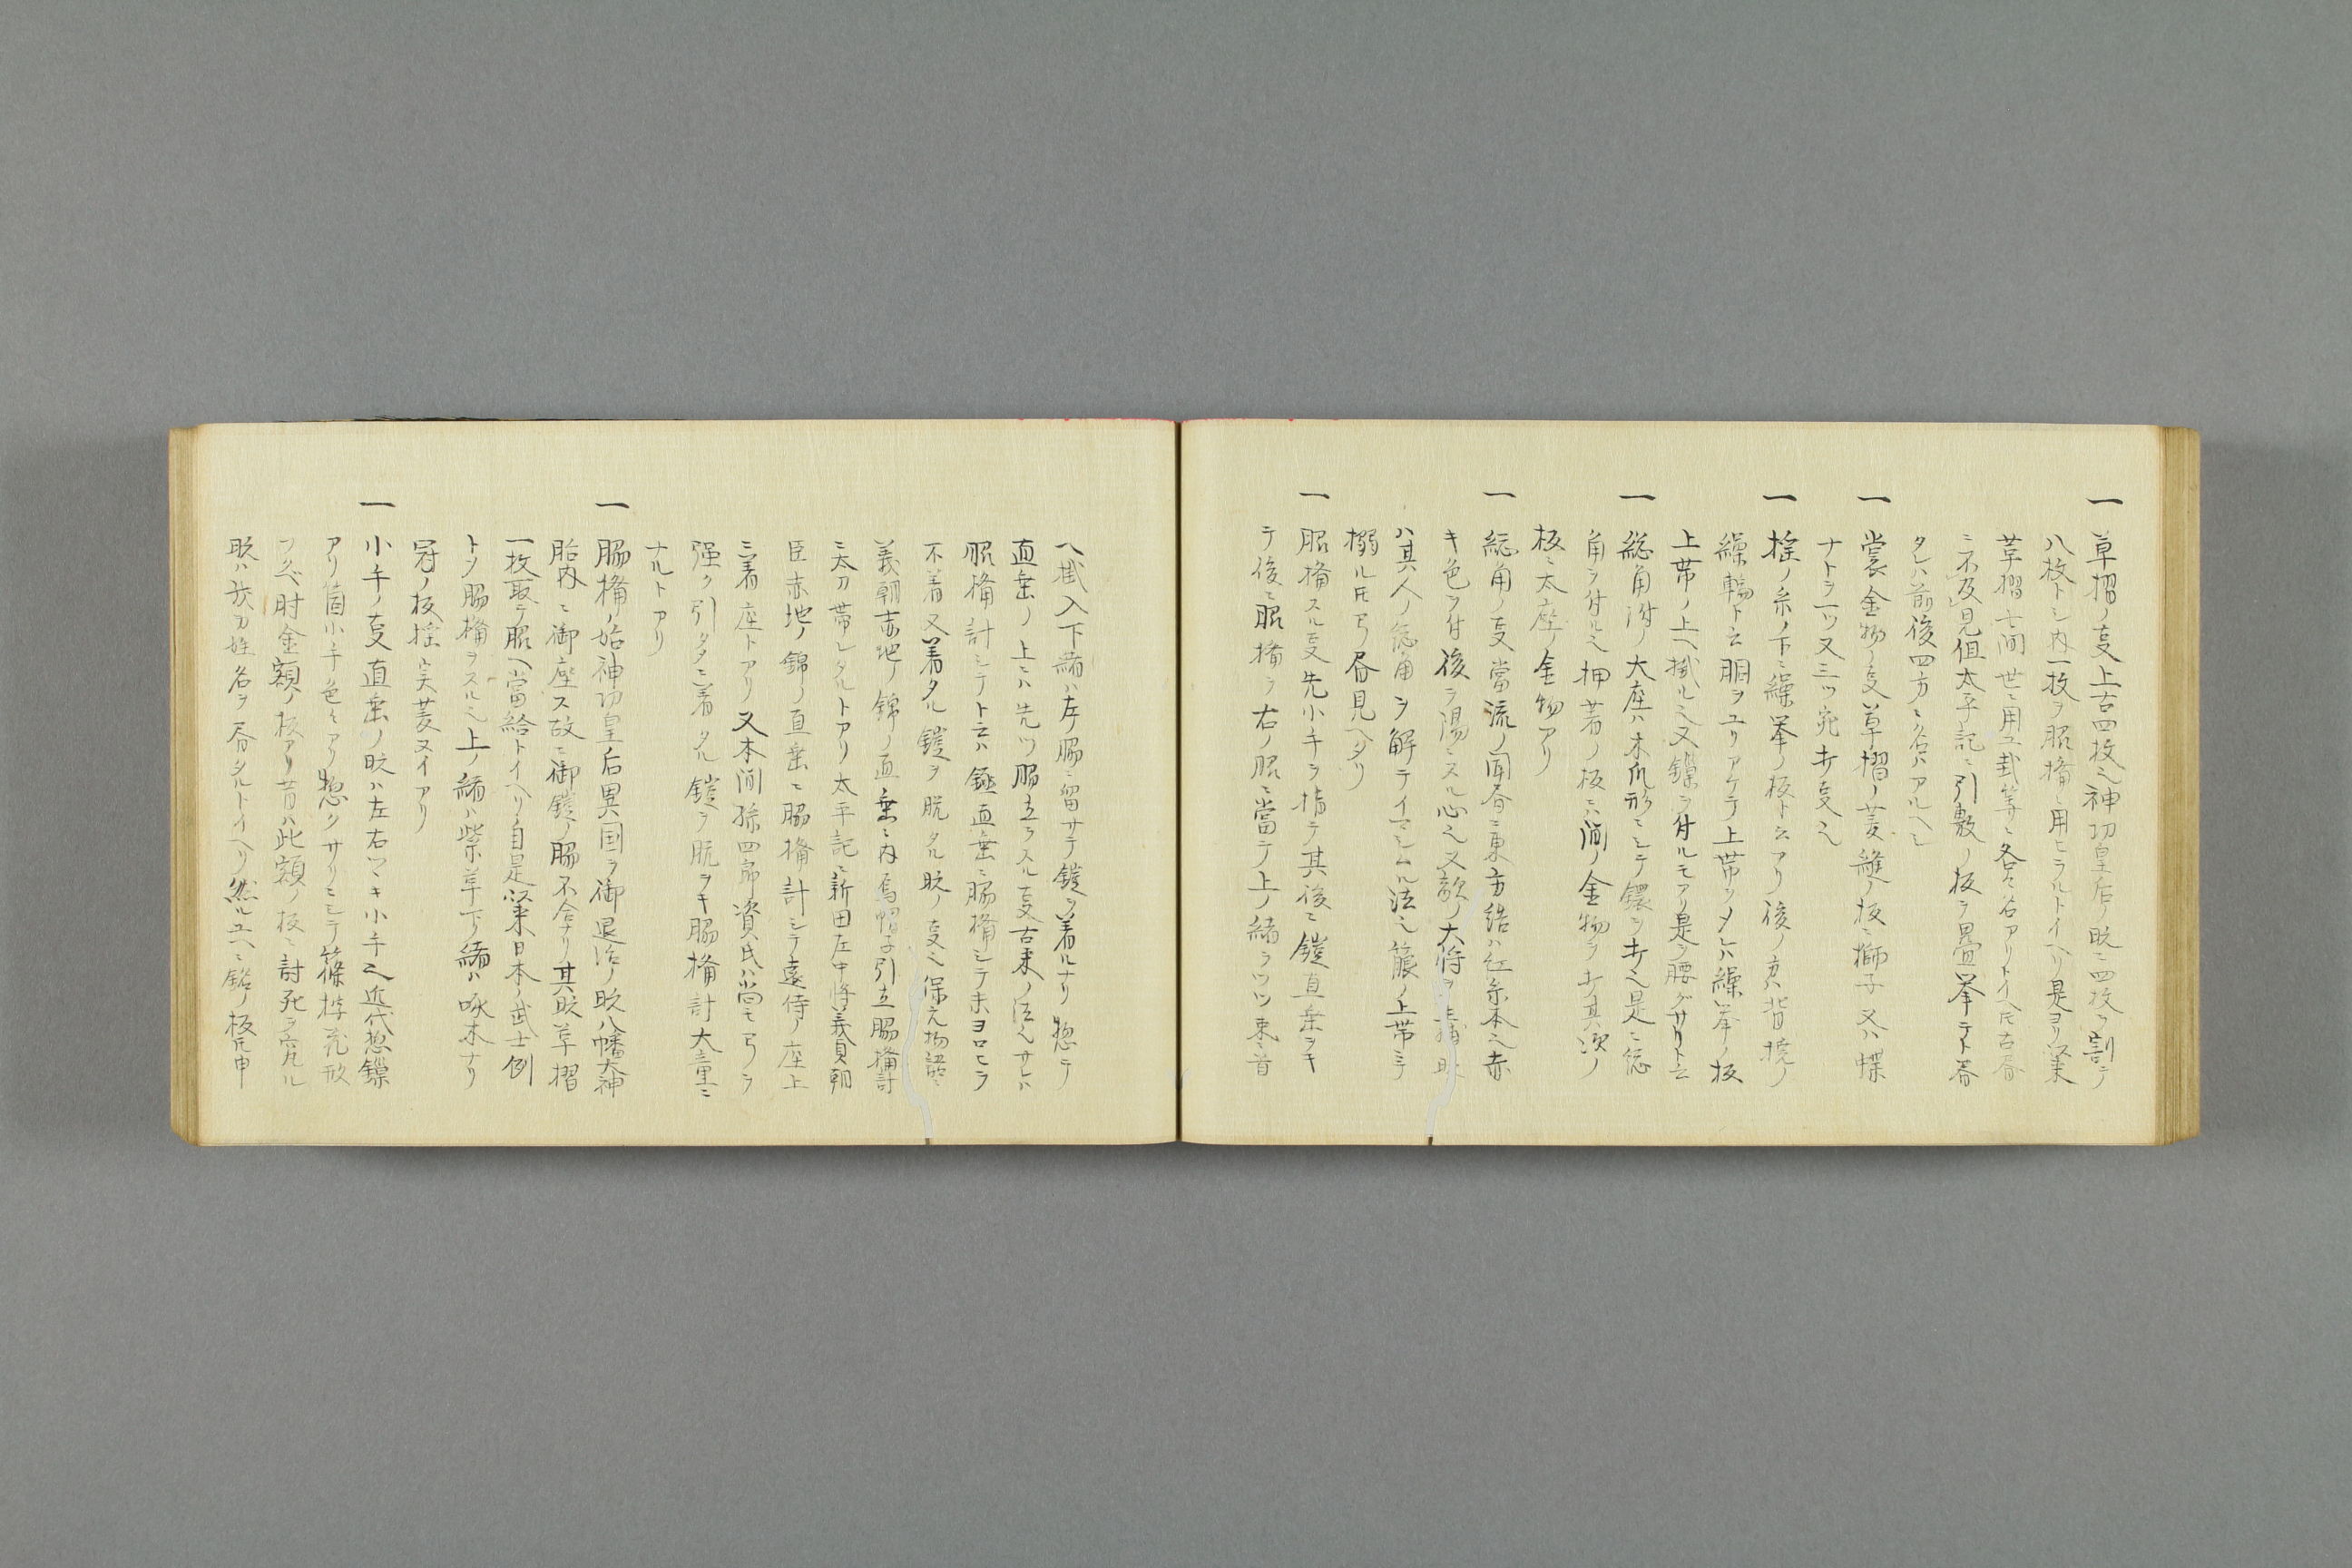 一 草摺ノ叓上古四枚也神功皇后ノ时ニ四枚ヲ割テ
八枚トシ内一枚ヲ脇楯ニ用ヒラルトイヘリ是ヨリ以来
草摺七间世ニ用ユ卦等ニ各名アリトイヘ𪜈古啚
ニ不及見但太平記ニ引敷ノ板ヲ畳挙テト啚
タレハ前後四方ニ名ハアルヘシ
一 裳金物ノ叓草摺ノ菱縫ノ板ニ獅子又ハ蝶
ナトヲ一ツ又三ツ宛打叓也
一 揺ノ糸ノ下ニ繰挙ノ板ト云アリ後ノ方ハ背撓ノ
繰輪ト云胴ヲユリアケテ上帯ヲメレハ繰挙ノ板
上帯ノ上ヘ掛ル也又鏁ヲ付ルモアリ是ヲ腰グサリト云
一 総角附ノ大座ハ木瓜形ニシテ鐶ヲ打也是ニ総
角ヲ付ル也押着ノ板ニハ箇ノ金物ヲ打其次ノ
板ニ太座ノ金物アリ
一 総角ノ叓當流ノ聞書ニ東方結ハ紅糸本也赤
キ色ヲ付後ヲ陽ニスル心也又敵ノ大将ヲ生捕时
ハ其人ノ総角ヲ解テイマシムル法也箙ノ上帯ニテ
搦ル𪜈アリ啚見ヘタリ
一 脇楯スル叓先小手ヲ指テ其後ニ鎧直垂ヲキ
テ後ニ脇楯ヲ右ノ脇ニ當テ上ノ緒ヲツツ束ニ首
ヘ掛入下緒ハ左ノ脇ニ留サテ鎧ヲ着ルナリ惣テ
直垂ノ上ニハ先ツ脇立ヲスル叓古来ノ法也サレハ
脇楯計ニテト云ハ鎧直垂ニ脇楯シテ未ヨロヒヲ
不着又着タル鎧ヲ脱タル时ノ叓也保元物語ニ
義朝赤地ノ錦ノ直垂ニ内烏帽子引立脇楯計
ニ太刀帯レタルトアリ太平記ニ新田左中将義貞朝
臣赤地ノ錦ノ直垂ニ脇楯計シテ遠侍ノ座上
ニ着座トアリ又本间孫四郎資氏ハ尚モ弓ヲ
强ク引タメニ着タル鎧ヲ脱ヲキ脇楯計大童ニ
ナルトアリ
一 脇楯ノ始神功皇后異国ヲ御退治ノ时八幡大神
胎内ニ御座ス故ニ御鎧ノ脇不合ナリ其时草摺
一枚取テ脇ヘ當給トイヘリ自是以来日本ノ武士例
トメ脇楯ヲスル也上ノ緒ハ紫革下ノ緒ハ啄木ナリ
冠ノ板揺実菱ヌイアリ
一 小手ノ叓直垂ノ时ハ左右ツヽキ小手也近代惣鏁
アリ筒小手色々アリ惣クサリニシテ篠
ツクベ肘金額ノ板アリ昔ハ此額ノ板ニ討死ヲ究ル
时ハ我カ姓名ヲ啚タルトイヘリ然ルユヘニ鎧ノ板𪜈申